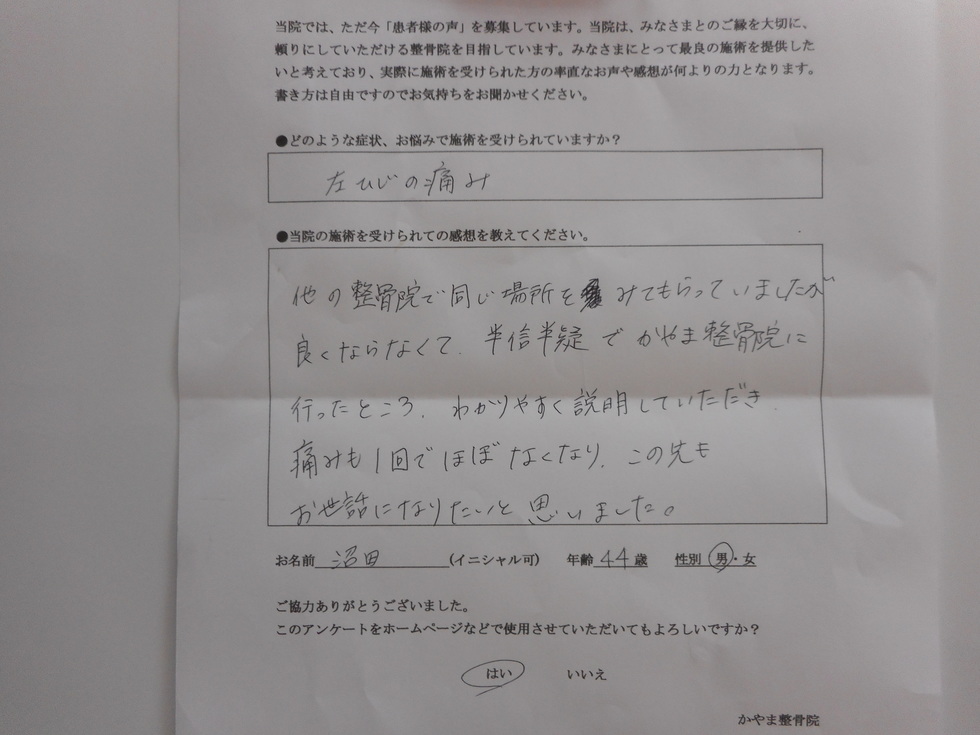 当院では、ただ今「患者様の声」を募集しています。当院は、みなさまとのご縁を大切に、
頼りにしていただける整骨院を目指しています。みなさまにとって最良の施術を提供した
いと考えており、実際に施術を受けられた方の率直なお声や感想が何よりの力となります。
書き方は自由ですのでお気持ちをお聞かせください。
●どのような症状、お悩みで施術を受けられていますか？
左ひじの痛み
●当院の施術を受けられての感想を教えてください。
他の整骨院で同じ場所をみてもらっていましたが
良くならなくて、半信半疑でかやま整骨院に
行ったところ、わかりやすく説明していただき、
痛みも1回でほぼなくなり、この先も
お世話になりたいと思いました。
お名前 沼田 (イニシャル可) 年齢 44 歳 性別 男・女
ご協力ありがとうございました。
このアンケートをホームページなどで使用させていただいてもよろしいですか？
はい いいえ
かやま整骨院